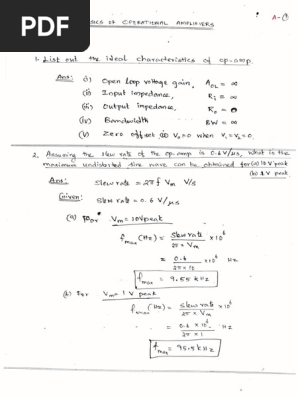 PDF
OF OPERATIONAL AMPLIFIERS
A-
1. List out the ideal characteristics of op-amp.
Ans: (i) Open loop voltage gain, A_OL = ∞
(ii) Input impedance, R_i = ∞
(iii) Output impedance, R_o = 0
(iv) Bandwidth BW = ∞
(v) Zero offset is V_o=0 when V_1=V_2=0.
2. Assuming the slew rate of the op-amp is 0.6V/μs, what is the
maximum undistorted sine wave can be obtained for (a) 10 V peak
(b) 1 V peak
Ans: slew rate = 2πf V_m V/s
Given: slew rate = 0.6 V/μs
(a) For V_m = 10V peak
f_max (Hz) = slew rate / 2π × V_m × 10^6
= 0.6 / 2π×10 × 10^6 Hz
f_max = 9.55 kHz
(b) For V_m = 1 V peak
f_max (Hz) = slew rate / 2π × V_m × 10^6
= 0.6 × 10^6 / 2π × 1 Hz
f_max = 95.5 kHz